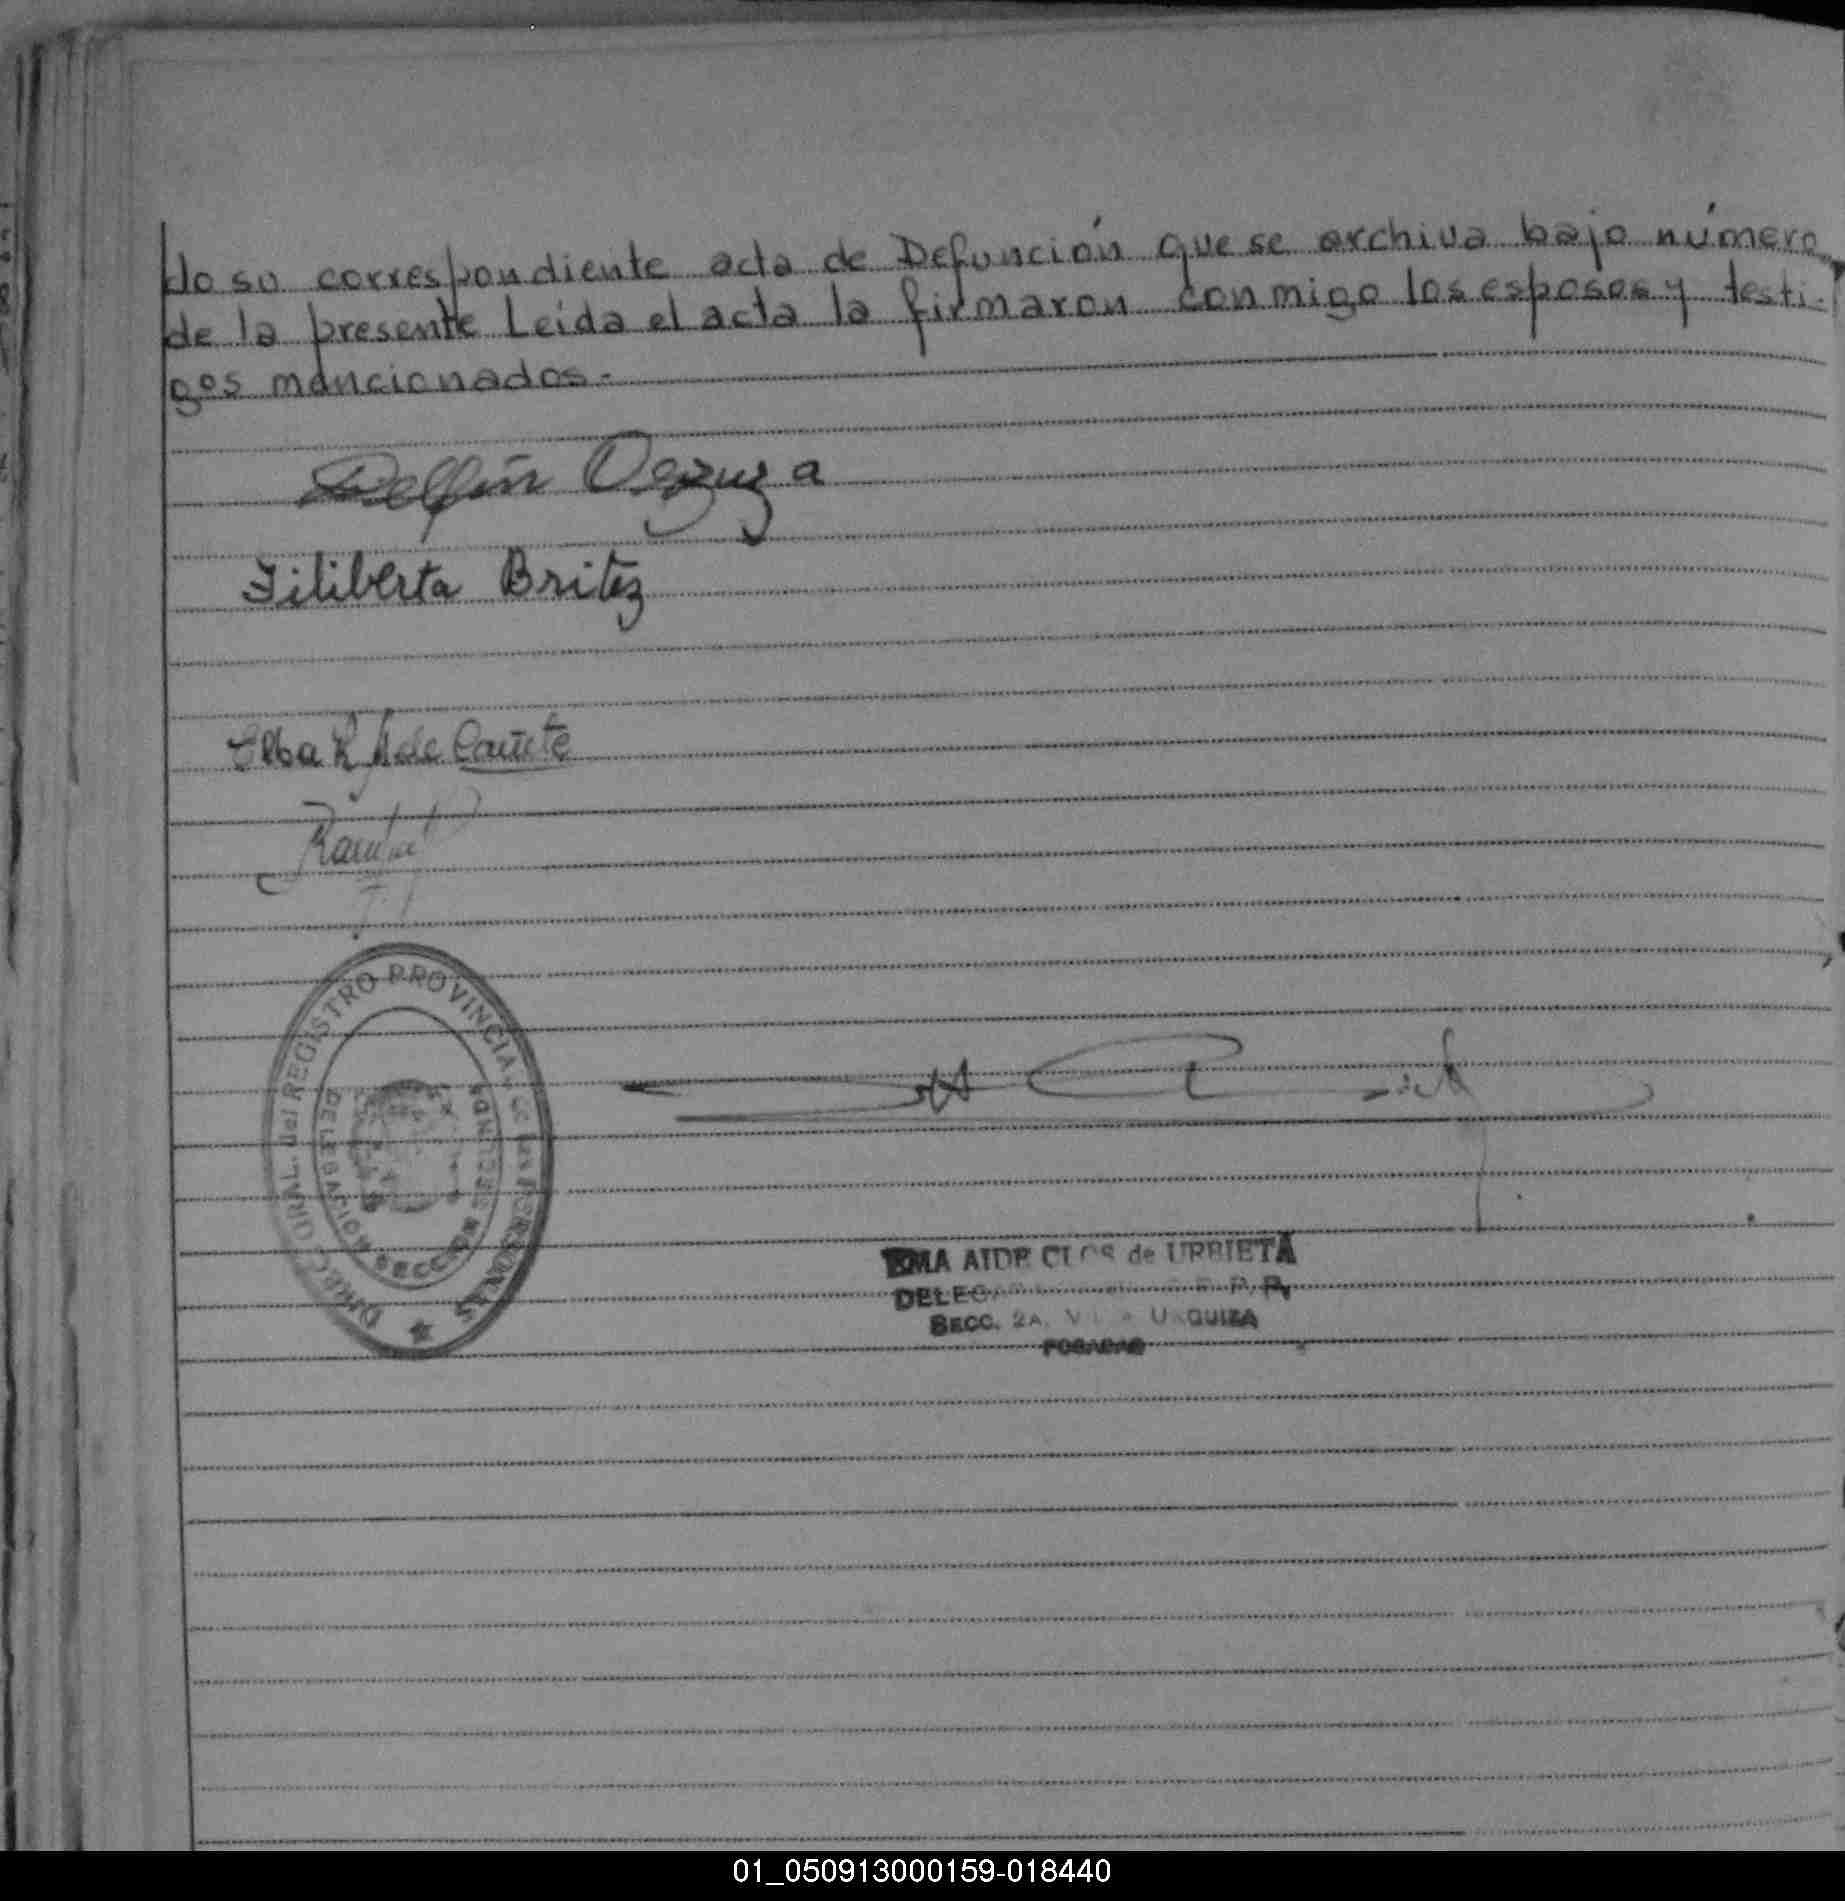 do su correspondiente acta de Defunción que se archiva bajo número
de la presente Leída el acta la firmaron conmigo los esposos y testi-
gos mencionados.-
Delfin
Filiberta Britez
Elba de Cañete
DIREC. GRAL. del REGISTRO PROVINCIAL de las PERSONAS
DELEGACION SECCION SEGUNDA
AIDE CLOS de URBIETA
SECC. 2A. VILLA URQUIZA
POSADAS
01_050913000159-018440